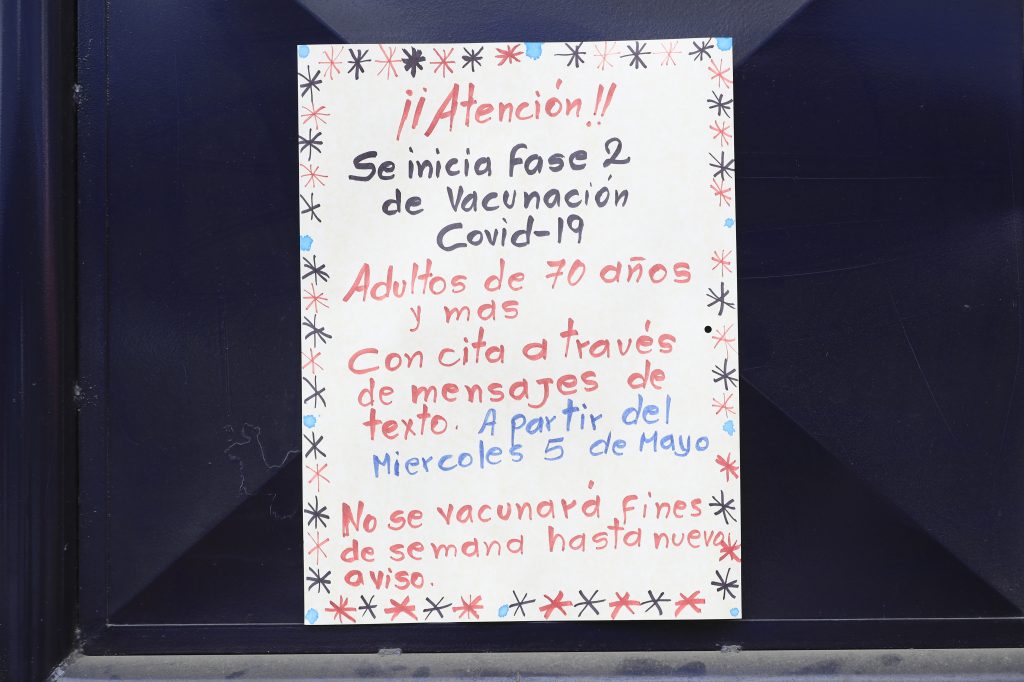 ¡¡Atención!!
Se inicia Fase 2
de Vacunación
Covid-19
Adultos de 70 años
y mas
Con cita a través
de mensajes de
texto. A partir del
Miercoles 5 de Mayo
No se vacunará Fines
de semana hasta nueva
aviso.